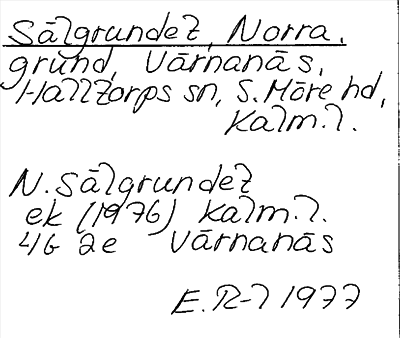 Sälgrundet, Norra.
grund, Värnanäs,
Halltorps sn, S. Möre hd,
Kalm. l.
N. Sälgrundet
ek (1976) Kalm. l.
4G 2e Värnanäs
E. R-l 1977